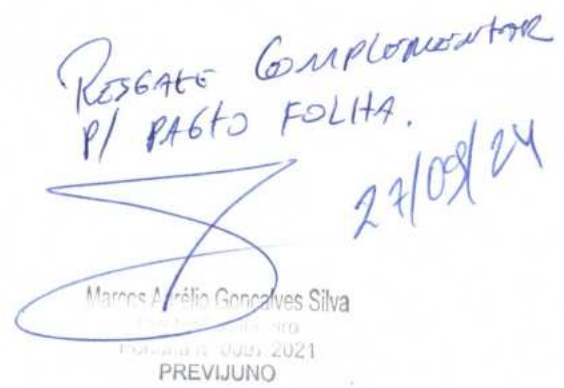 RESGATE COMPLEMENTAR
P/ PAGTO FOLHA.
27/09/24
Marcos Aurélio Gonçalves Silva
2021
PREVIJUNO